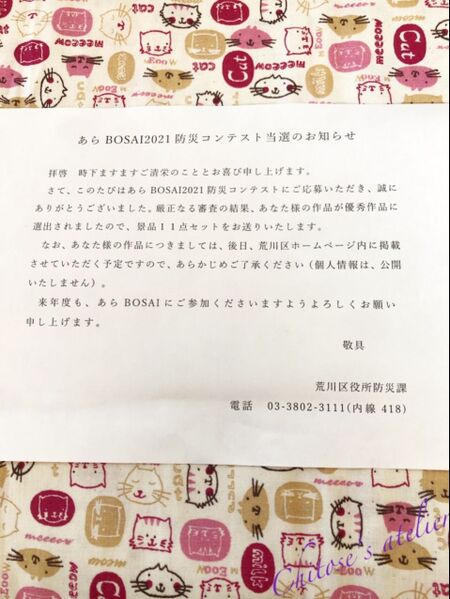 meeeow
Cat
meeow
cat
Cat
meeeow
あら BOSAI2021 防災コンテスト当選のお知らせ
拝啓　時下ますますご清栄のこととお喜び申し上げます。
さて、このたびはあら BOSAI2021 防災コンテストにご応募いただき、誠に
ありがとうございました。厳正なる審査の結果、あなた様の作品が優秀作品に
選出されましたので、景品１１点セットをお送りいたします。
なお、あなた様の作品につきましては、後日、荒川区ホームページ内に掲載
させていただく予定ですので、あらかじめご了承ください（個人情報は、公開
いたしません）。
来年度も、あら BOSAI にご参加くださいますようよろしくお願い
申し上げます。
敬具
荒川区役所防災課
電話　03-3802-3111(内線 418)
meeeow
milk
Chitose's atelier